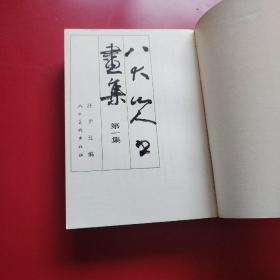 八大山人书
畫集
第一集
汪子豆编
人民美术出版社